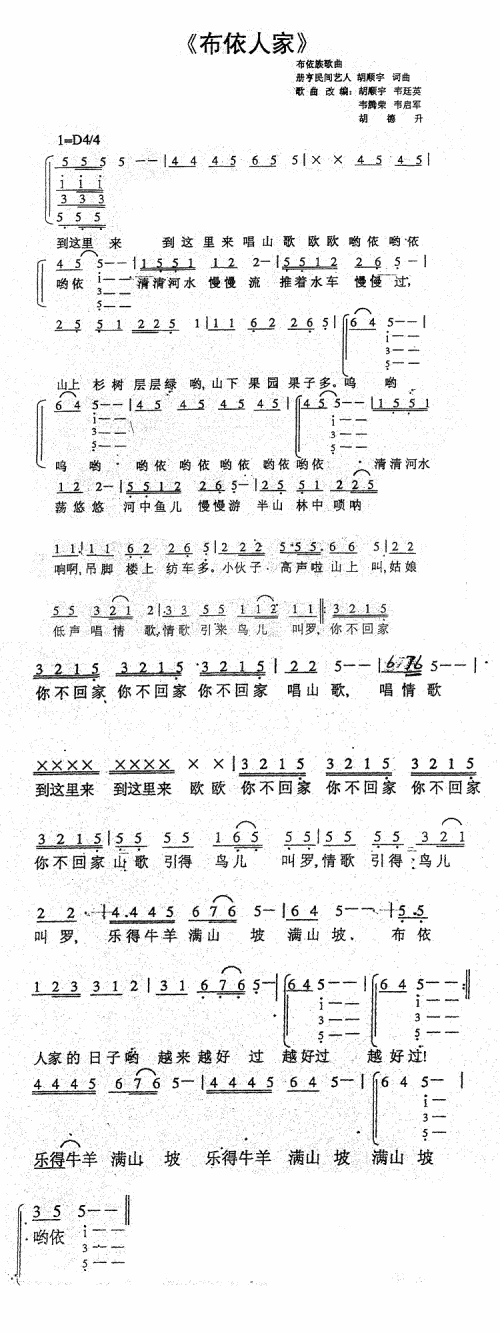 《布依人家》
布依族歌曲
册亨民间艺人 胡顺宇 词曲
歌曲改编：胡顺宇 韦廷英
韦腾荣 韦启军
胡德升
1=D4/4
5 5 5 5 5 - - | 4 4 4 5 6 5 5 | × × 4 5 4 5 |
i i i
3 3 3
5 5 5
到这里 来 到这里来唱山歌欧欧哟依哟依
4 5 5 - - | 1 5 5 1 1 2 2 - | 5 5 1 2 2 6 5 - |
i - -
3 - -
5 - -
哟依 清清河水 慢慢 流 推着水车 慢慢 过，
2 5 5 1 2 2 5 1 | 1 1 6 2 2 6 5 | 6 4 5 - - |
i - -
3 - -
5 - -
山上 杉树 层层绿 哟，山下 果园 果子多。呜 哟
6 4 5 - - | 4 5 4 5 4 5 4 5 | 4 5 5 - - | 1 5 5 1
i - -
3 - -
5 - -
i - -
3 - -
5 - -
呜 哟 哟依 哟依 哟依 哟依哟依 清清河水
1 2 2 - | 5 5 1 2 2 6 5 - | 2 5 5 1 2 2 5
荡悠悠 河中鱼儿 慢慢游 半山 林中 唢呐
1 1 | 1 1 6 2 2 6 5 | 2 2 2 5 5 5 6 6 5 | 2 2
响啊，吊脚 楼上 纺车多。小伙子·高声啦山上 叫，姑娘
5 5 3 2 1 2 | 3 3 5 5 1 1 2 1 1 : 3 2 1 5
低声 唱情 歌，情歌 引来 鸟儿 叫罗，你不回家
3 2 1 5 3 2 1 5 3 2 1 5 | 2 2 5 - - | 6 7 6 5 - - |
你不回家 你不回家 你不回家 唱山歌， 唱情歌
×××× ×××× × × | 3 2 1 5 3 2 1 5 3 2 1 5
到这里来 到这里来 欧欧 你不回家 你不回家 你不回家
3 2 1 5 | 5 5 5 5 1 6 5 5 5 | 5 5 5 5 3 2 1
你不回家 山歌 引得 鸟儿 叫罗，情歌 引得 鸟儿
2 2 - | 4 4 4 5 6 7 6 5 - | 6 4 5 - | 5 5
叫罗， 乐得牛羊 满山 坡 满山坡、 布依
1 2 3 3 1 2 | 3 1 6 7 6 5 - | 6 4 5 - - | 6 4 5 - - :
i - -
3 - -
5 - -
i - -
3 - -
5 - -
人家的 日子哟 越来 越好 过 越好过 越好过！
4 4 4 5 6 7 6 5 - | 4 4 4 5 6 4 5 - | 6 4 5 - - |
i - -
3 - -
5 - -
乐得牛羊 满山 坡 乐得牛羊 满山 坡 满山坡
3 5 5 - -
i - -
3 - -
5 - -
哟依